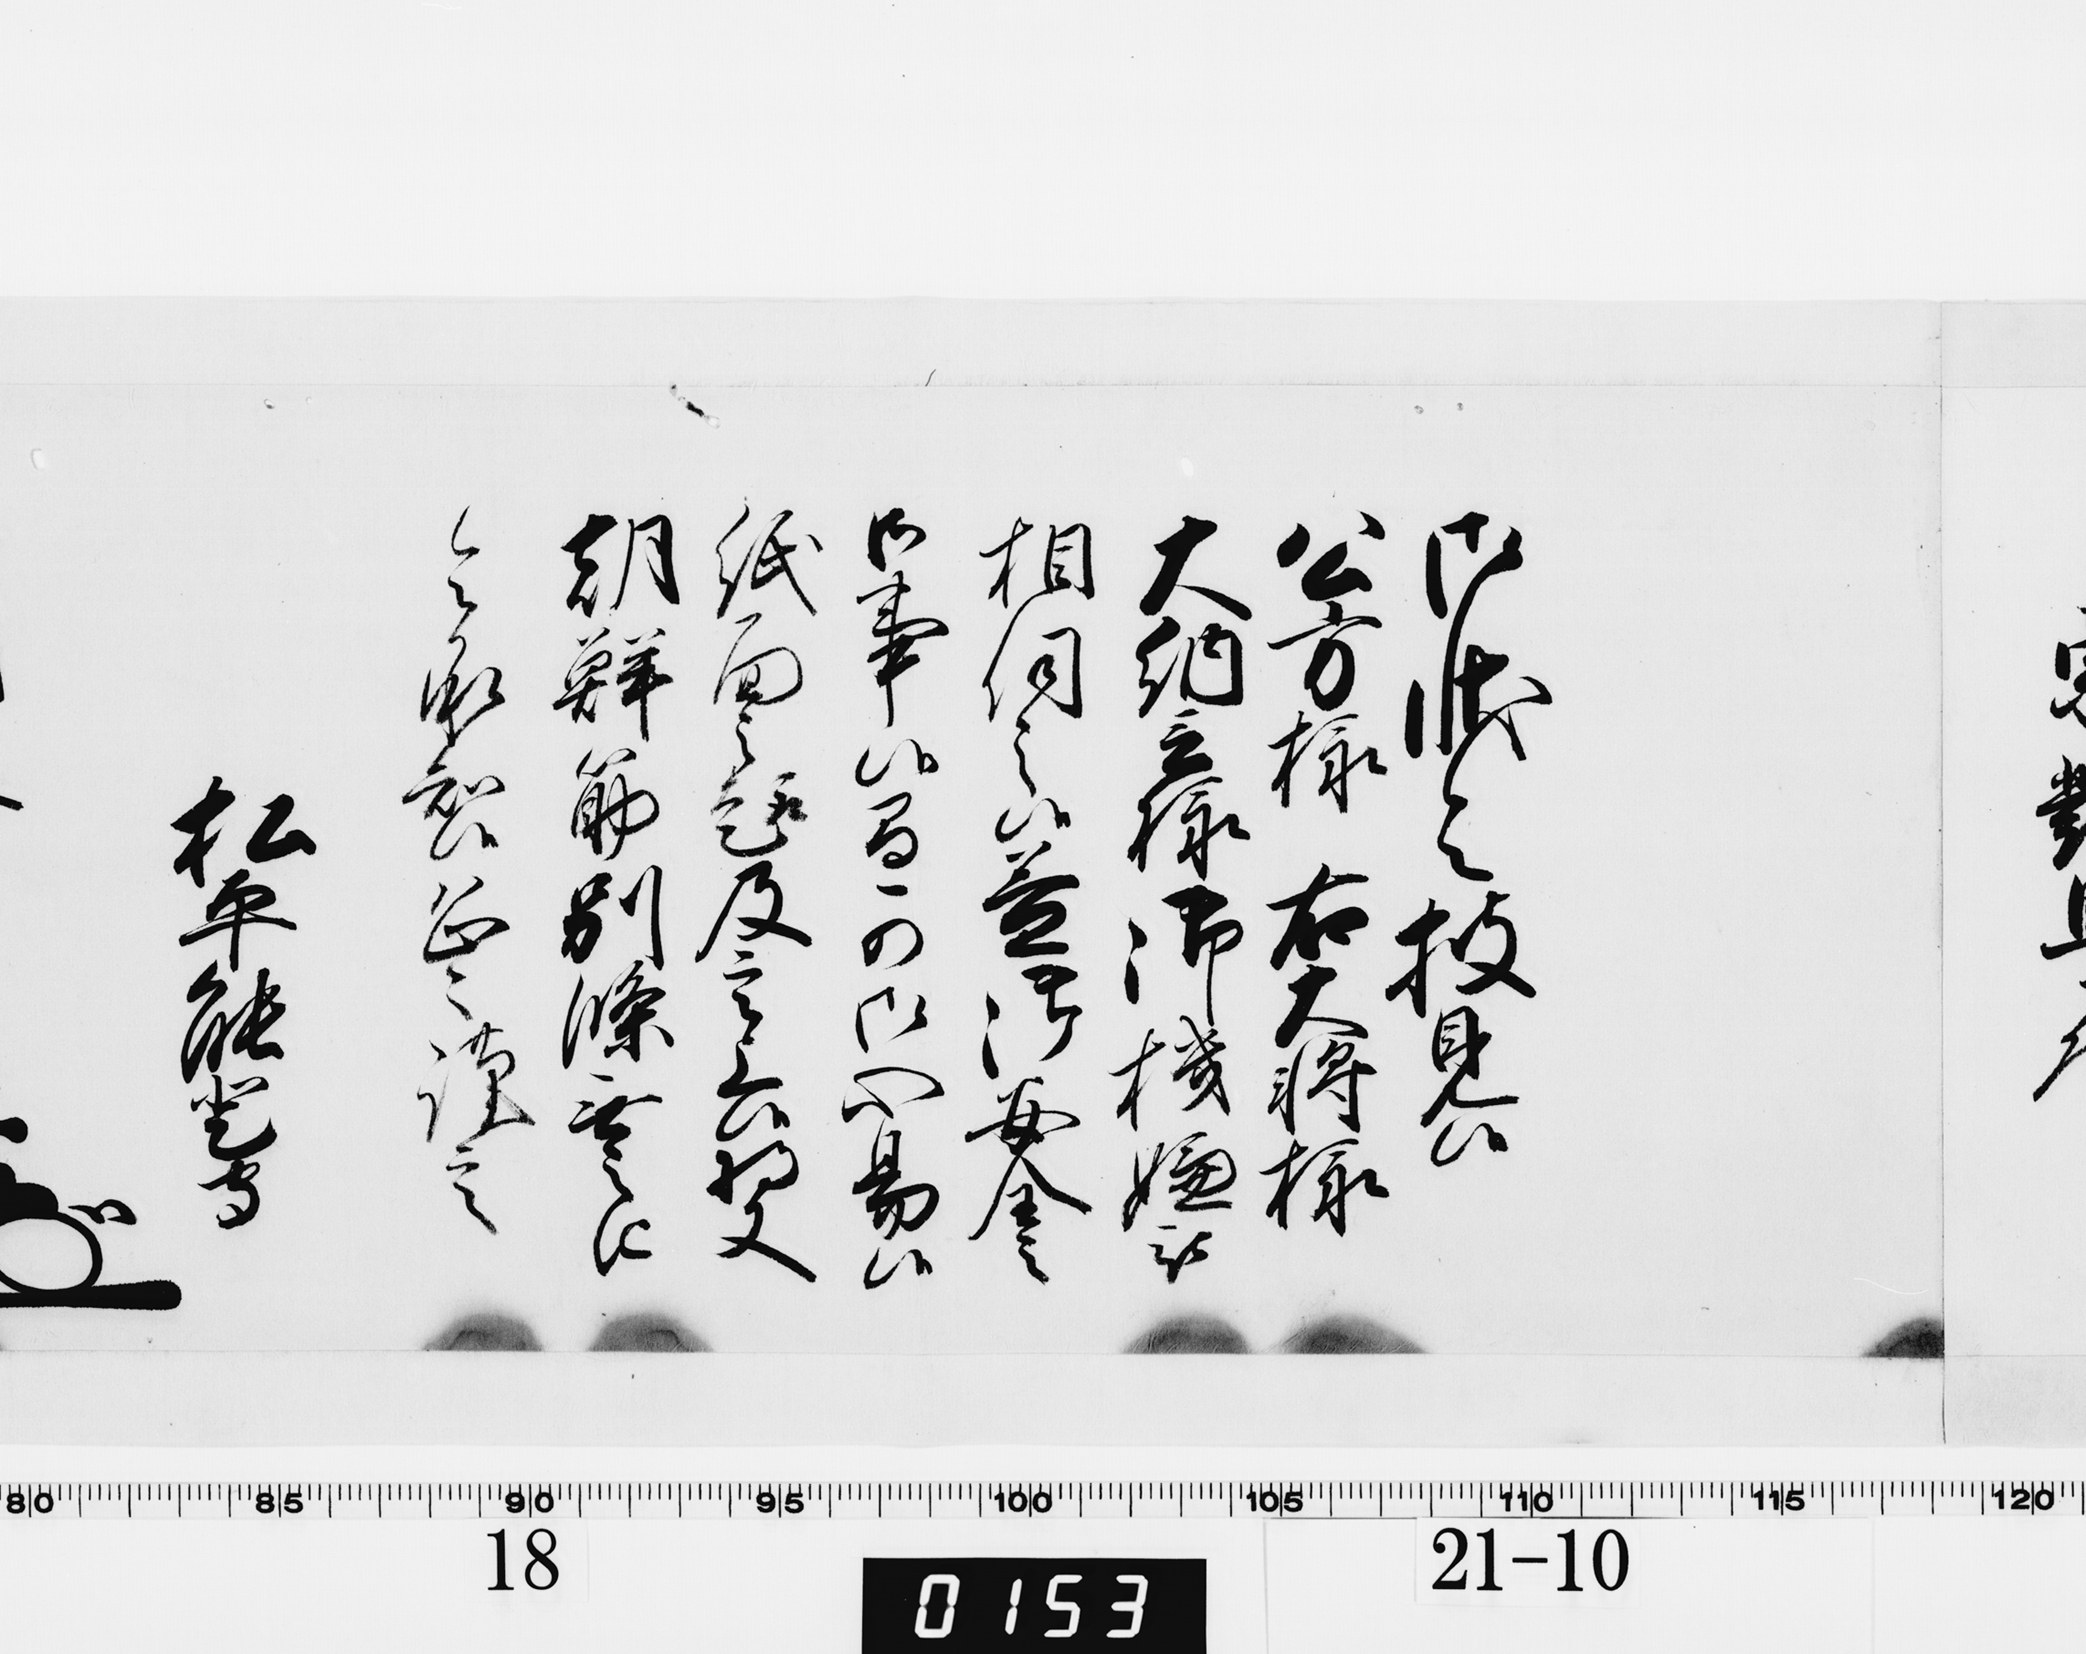 御状令披見候
公方様　右大将様
大納言様御機嫌被
相伺之候益御安全之
御事候間可御心易候
紙面之趣及言上候将又
朝鮮筋別條無之
令承知候恐々謹言
松平能登守
18
0153
21-10
80 85 90 95 100 105 110 115 120